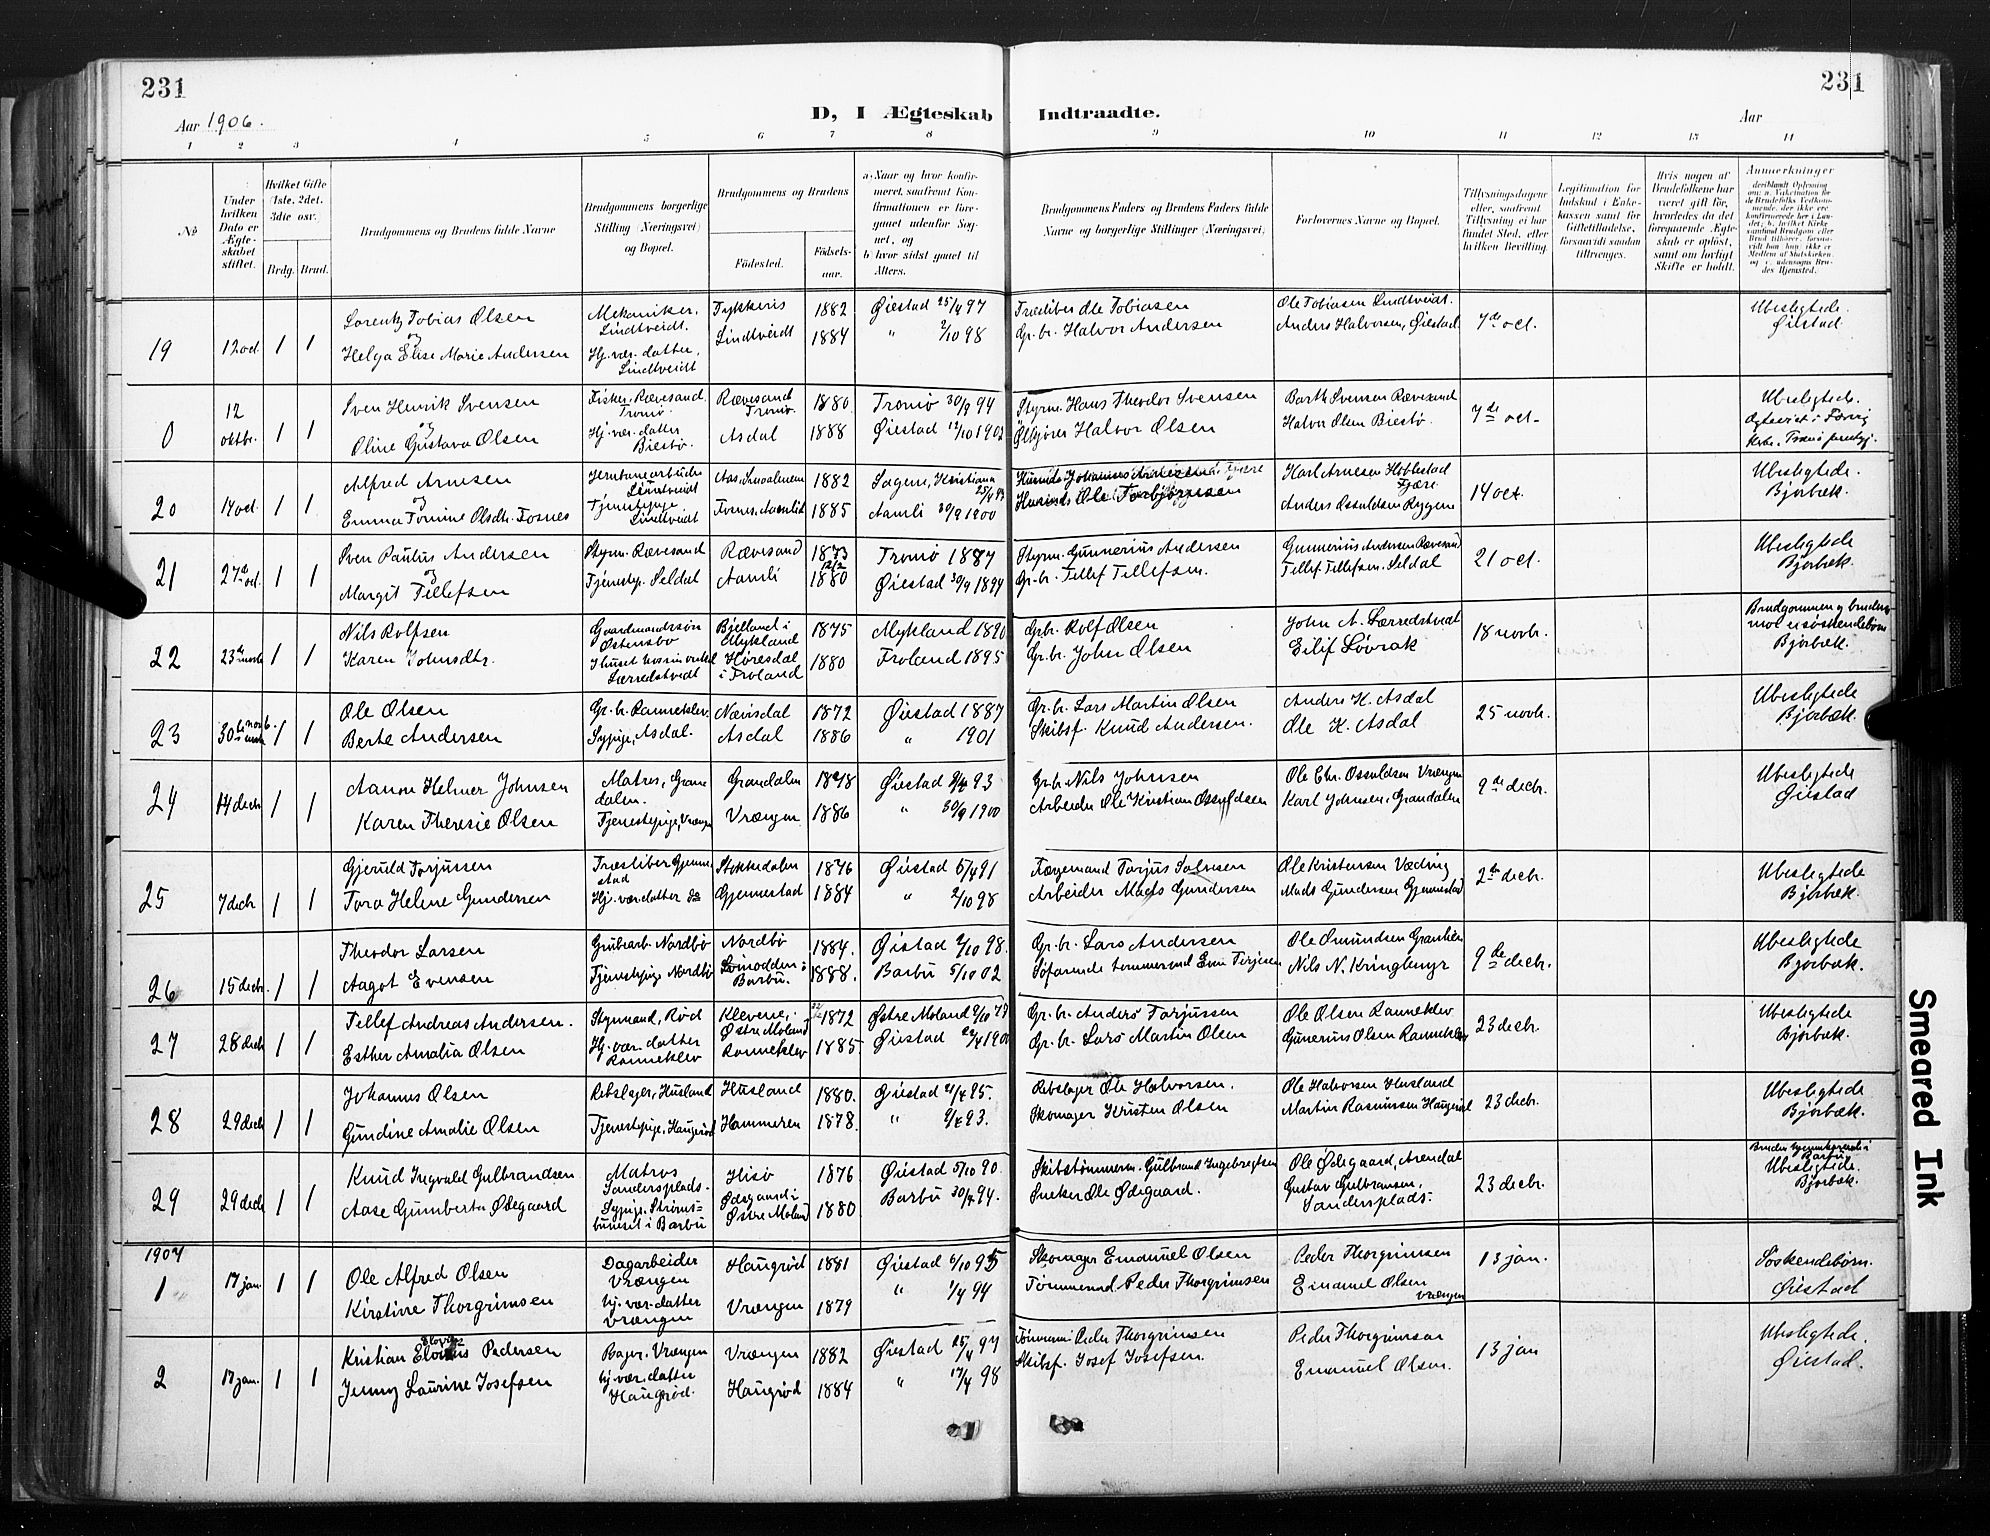 231
231
Aar 1906.
D, I Ægteskab Indtraadte.
Aar
1 2 3 4 5 6 7 8 9 10 11 12 13 14
No
Under hvilken Dato er Ægteskabet stiftet.
Hvilket Gifte (1ste, 2det, 3die osv.)
Brdg. Brud.
Brudgommens og Brudens fulde Navne
Brudgommens borgerlige Stilling (Næringsvei) og Bopæl.
Brudgommens og Brudens
Fødested.
Fødselsaar.
a) Naar og hvor konfirmeret, saafremt Konfirmationen er foregaaet udenfor Sognet, og
b) hvor sidst gaaet til Alters.
Brudgommens Faders og Brudens Faders fulde Navne og borgerlige Stillinger (Næringsvei)
Forlovernes Navne og Bopæl.
Tillysningsdagene eller, saafremt Tillysning ei har fundet Sted, efter hvilken Bevilling.
Legitimation for Indskud i Enkekassen samt for Giftetilladelse, forsaavidt saadan tiltrænges.
Hvis nogen af Brudefolkene har været gift før, hvorledes da det foregaaende Ægteskab er opløst, samt om lovligt Skifte er holdt.
Anmerkninger
19 12 oct. 1 1
Lorentz Tobias Olsen
og
Helga Elise Marie Andersen
Mekaniker, Lindtveidt.
Hj. vær. datter, Lindtveidt
Lindtveidt
1882
1884
Øiestad 25/4 97
" 2/10 98
Træsliber Ole Tobiasen
Gr. br. Halvor Andersen
Ole Tobiasen Lindtveidt.
Anders Halvorsen, Øiestad
7de oct.
Ubeslegtede.
Øiestad
0 12 oktbr. 1 1
Sven Henrik Svensen
og
Oline Gustava Olsen
Fisker, Rævesand. Tromø.
Hj. vær. datter Biestø.
Rævesand Tromø.
Asdal
1880
1888
Tromø 30/9 94
Øiestad 12/10 1902
Styrm. Hans Theodor Svensen
Halvor Olsen
Barth Svensen Rævesand
Halvor Olsen Biestø.
7de oct.
Ubeslegtede.
20 14 oct. 1 1
Alfred Arnesen
og
Emma Tomine Olsdtr. Fosnes
Lindtveidt
Tjenestepige Lindtveidt
1882
1885
Sagene, Kristiana
Aamli 30/9 1900
Ole Torbjørnsen
Karl Arnesen
Fjære
Anders Osuldsen Rygene
14 oct.
Ubeslegtede.
Bjorbæk.
21 27de oct. 1 1
Sven Paulus Andersen
og
Margit Tellefsen
Styrm. Rævesand
Tjenestep. Seldal
Rævesand
Aamli
1873
12/2
1880
Tromø 1887
Øiestad 30/9 1894
Styrm. Gunnerius Andersen
Gr. br. Tellef Tellefsen.
Gunnerius Andersen Rævesand
Tellef Tellefsen. Seldal
21 oct.
Ubeslegtede
Bjorbæk.
22 23de novb. 1 1
Nils Rolfsen
Karen Johnsdtr.
Gaardmandssøn Østensbø
Lærredstvedt
Bjelland i Mykland
Høresdal i Froland
1875
1880
Mykland 1890
Froland 1895
Grbr. Rolf Olsen
Gr. br. John Olsen
John A. Lærredstvedt
Eilif Løvrak
18 novbr.
Bjorbæk.
23 30te novb. 1 1
Ole Olsen
Berte Andersen
Gr. br. Ranneklev.
Sypige, Asdal.
Nævisdal
Asdal
1872
1886
Øiestad 1887
" 1901
Gr. br. Lars Martin Olsen
Skibsf. Knud Andersen.
Anders K. Asdal
Ole K. Asdal
25 novb.
Ubeslegtede
Bjorbæk.
24 14 decb. 1 1
Aanon Helmer Johnsen
Karen Theresie Olsen
Matros, Grandalen.
Tjenestepige, Vrængen
Grandalen
Vrængen
1878
1886
Øiestad 9/4 93
" 30/9 1900
Gr. br. Nils Johnsen
Arbeider Ole Kristian Ossuldsen
Ole Chr. Ossuldsen Vrængen
Karl Johnsen, Grandalen
9de decbr.
Ubeslegtede
Øiestad
25 7 decb. 1 1
Gjeruld Torjussen
Tora Helene Gundersen
Træsliber Gjennestad
Hj. vær. datter do
Stokkedalen
Gjennestad
1876
1884
Øiestad 5/4 91
" 2/10 98
Færgemand Torjus
Arbeider Mads Gundersen
Ole Kristensen Vedring
Mads Gundersen Gjennestad
2de decbr.
Ubeslegtede
Bjorbæk.
26 15 decb. 1 1
Theodor Larsen
Aagot Evensen
Grubearb. Nordbø
Tjenestepige Nordbø
Nordbø
Barbu.
1884.
1888.
Øiestad 2/10 98.
Barbu 5/10 02
Gr. br. Lars Andersen
Søfarende tømmermand Even Terjesen
Ole Omundsen
Nils N. Kringlemyr
9de decbr.
Ubeslegtede
Bjorbæk.
27 28 decb. 1 1
Tellef Andreas Andersen.
Esther Amalia Olsen
Styrmand, Rød
Hj. vær. datter Ranneklev
Klevene, Østre Moland
Ranneklev
1872
1885
Østre Moland
Øiestad 22/4 1900
Gr. br. Anders Torjussen
Gr. br. Lars Martin Olsen
Ole Olsen Ranneklev
Gunerius Olsen Ranneklev
23 decbr.
Ubeslegtede
Bjorbæk.
28 29 decb. 1 1
Johannes Olsen
Gundine Amalie Olsen
Rebslager, Husland
Tjenestepige, Haugerød
Husland
Hammeren
1880.
1878.
Øiestad 21/4 95.
" 9/4 93.
Rebslager Ole Halvorsen.
Skomager Kristen Olsen
Ole Halvorsen Husland
Martin Rasmussen Haugerød
23 decbr.
Ubeslegtede
Bjorbæk.
29 29 decb. 1 1
Knud Ingvald Gulbrandsen
Aase Gumberta Ødegaard
Matros Sandersplads.
Sypige, Strømsbuneset i Barbu
Hisø
Ødegaard i Østre Moland
1876
1880
Øiestad 5/10 90.
Barbu 30/9 94.
Skibstømmerm. Gulbrand Ingebregtsen
Sneker Ole Ødegaard.
Ole Ødegaard, Arendal
Gustav Gulbransen, Sandersplads.
23 decbr.
Barbu
Ubeslegtede.
Bjorbæk.
1907
1 17 jan. 1 1
Ole Alfred Olsen
Kirstine Thorgrimsen
Dagarbeider Vrængen
Hj. vær. datter Vrængen
Haugrød
Vrængen
1881
1879
Øiestad 6/10 95
" 1/4 94
Skomager Emanuel Olsen
Tømmermd. Peder Thorgrimsen
Peder Thorgrimsen
Emanuel Olsen
Vrængen
13 jan.
Søskendebørn.
Øiestad
2 17 jan. 1 1
Kristian Elovius Pedersen
Jenny Laurine Josefsen
Bager, Vrængen
Hj. vær. datter Haugrød.
Vrængen
Haugrød
1882
1884
Øiestad 25/4 97
" 17/4 98
Tømmerm. Peder Thorgrimsen
Skibsf. Josef Josefsen.
Peder Thorgrimsen
Emanuel Olsen.
13 jan
Ubeslegtede.
Øiestad.
Smeared Ink